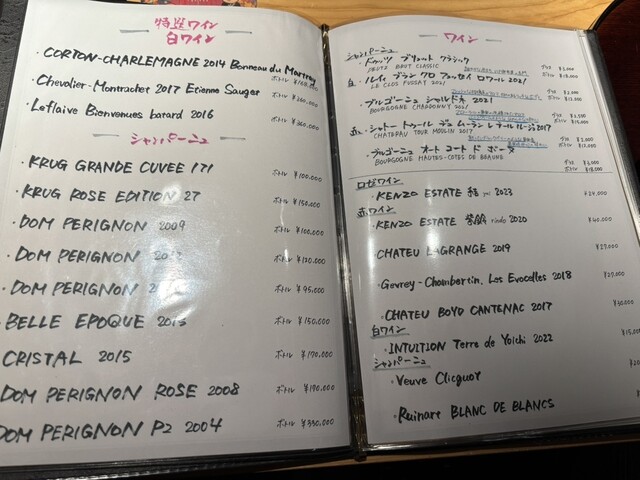 特選ワイン
白ワイン
・CORTON-CHARLEMAGNE 2014 Bonneau du Martray
ボトル
・Chevalier-Montrachet 2017 Etienne Sauzer
ボトル ¥260.000
・Leflaive Bienvenues batard 2016
ボトル ¥360.000
シャンパーニュ
・KRUG GRANDE CUVEE 171 ボトル ¥100.000
・KRUG ROSE EDITION 27 ボトル ¥150.000
・DOM PERIGNON 2009 ボトル ¥100.000
・DOM PERIGNON ボトル ¥120.000
・DOM PERIGNON ボトル ¥95.000
・BELLE EPOQUE ボトル ¥150.000
CRISTAL 2015 ボトル ¥170.000
DOM PERIGNON ROSE 2008 ボトル ¥190.000
DOM PERIGNON P2 2004 ボトル ¥330.000
ワイン
シャンパーニュ
・ドゥッツ ブリュット クラシック
DEUTZ BRUT CLASSIC
白
LE CLOS FUSSAY 2021
・ブルゴーニュ シャルドネ 2021
BOURGOGNE CHARDONNAY 2021
赤
CHATEAU TOUR MOULIN 2017
・ブルゴーニュ オート コート ド ボーヌ
BOURGOGNE HAUTES-COTES DE BEAUNE
ロゼワイン
・KENZO ESTATE 結 yui 2023 ¥24.000
赤ワイン
・KENZO ESTATE 紫鈴 rindo 2020 ¥40.000
・CHATEU LAGRANGE 2019
・Gevrey-Chambertin, Les Evocelles 2018
・CHATEU BOYD CANTENAC 2017 ¥30.000
白ワイン
・INTUITION Terre de Yoichi 2022
シャンパーニュ
・Veuve Clicquot
・Ruinare BLANC DE BLANCS